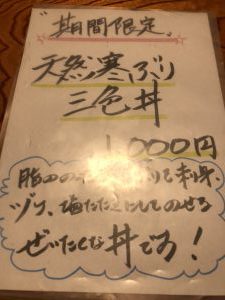 "期間限定"
天然寒ぶり
三色丼
1,000円
脂の
も刺身、
ヅケ、塩たたきにしてのせる
ぜいたくな丼です!